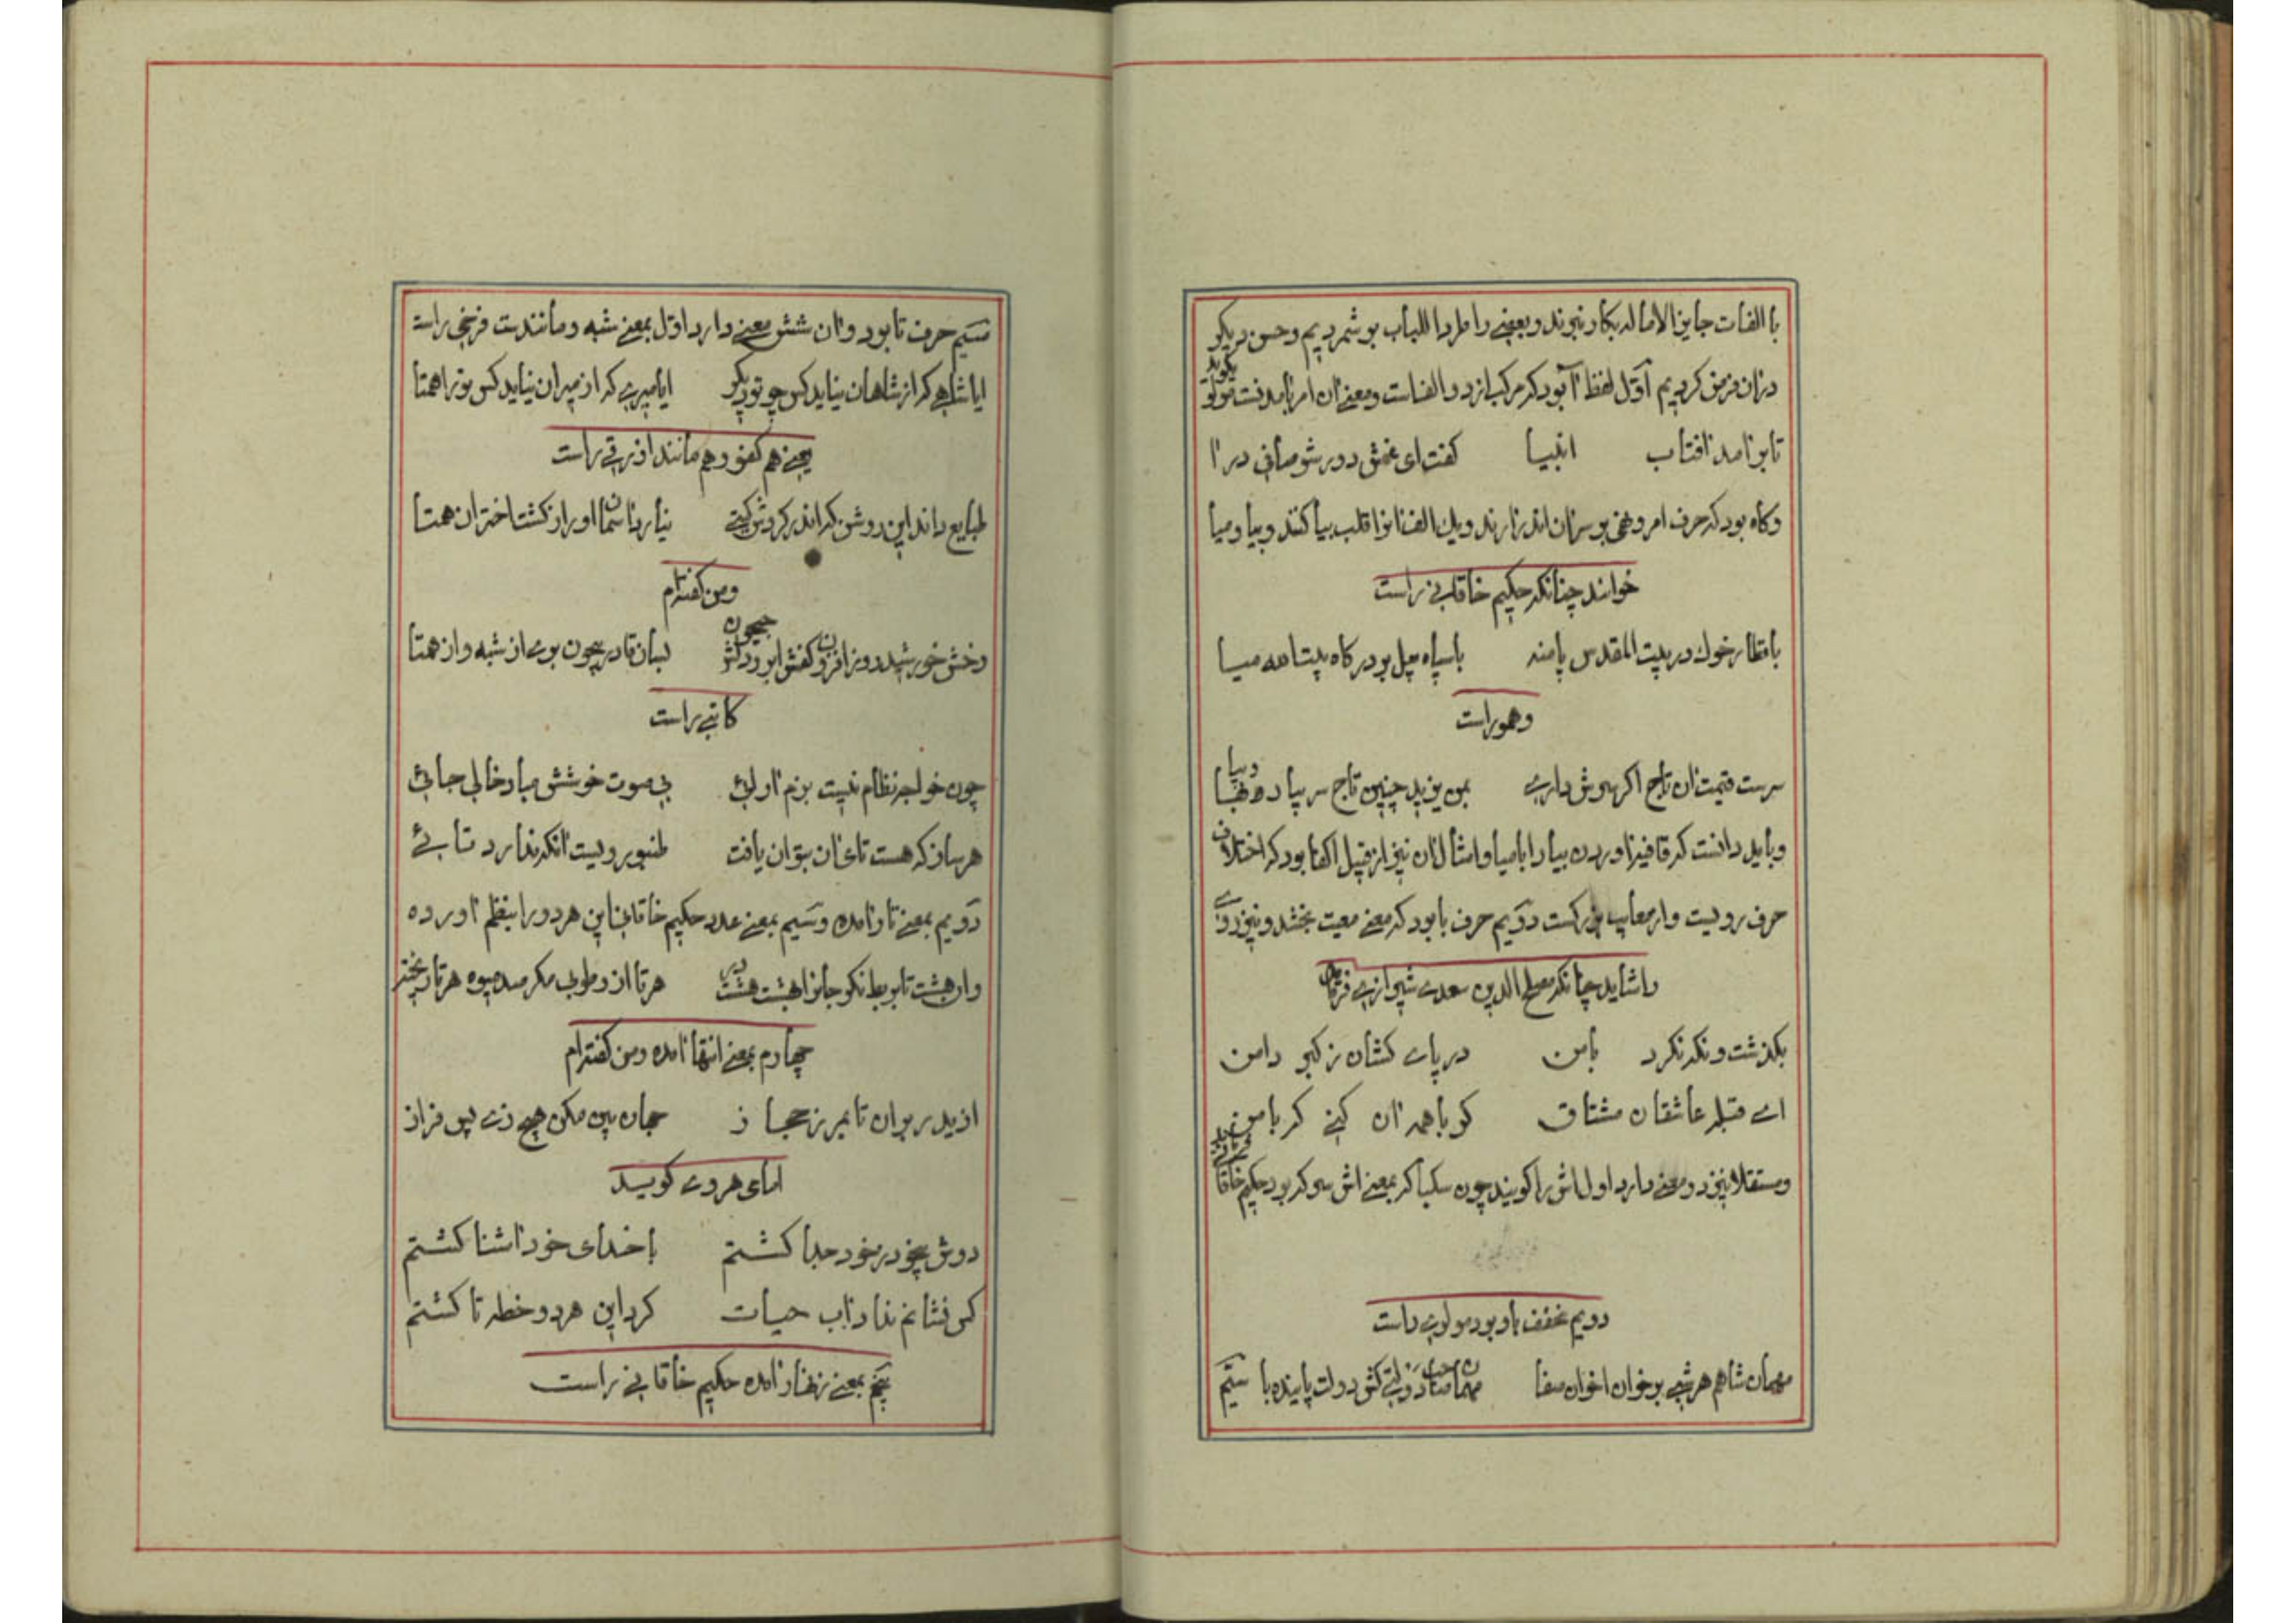 با الفات جایز الاماله بکار نبرند و بعضی را طردا للباب بر شمردیم و حسن در یکو
در ان فرض کردیم اول لفظ آ بود که مرکب از دو الفاست و معنی ان امر بامدنست مولوی کوید
تا بر امد افتاب انبیا کفت ای غش دور شو صافی درا
وکاه بود که حرف امر و نهی بر سر ان اندر ارند و یک الف انرا قلب بیا کنند و بیا و میا
خوانند چنانکه حکیم خاقانی راست
با قطار خوک در بیت المقدس پا منه با سپاه پیل بر درکاه بیت الله میا
و همو راست
سرت قیمت ان تاج اکر هوش داری بمن یزید چنین تاج سر بیا و بیا
و باید دانست که قافیه اوردن بیا را با میا و امثال ان نیز از قبیل اکفا بود که اختلاف
حرف رویست و از معایب بزرکست دویم حرف با بود که معنی معیت بخشد و نیز روی
را شاید چنانکه مصلح الدین سعدی شیرازی فرماید
بکذشت و نکه نکرد با من در پای کشان ز کبر دامن
ای قبله عاشقان مشتاق کو با همه ان کنی که با من
و مستقلا نیز دو معنی دارد اول اش را کویند چون سکبا که بمعنی اش سرکه بود حکیم خاقانی
دویم مخفف باد بود مولوی راست
مهمان شاهم هر شبی بر خوان اخوان صفا مهمان صاحب دولتم کش دولت پاینده با سیم
سیم حرف تا بود و ان شش معنی دارد اول بمعنی شبه و مانندست فرخی راست
ایا شاهی که از شاهان نیاید کس چو تو دیکر ایا میری که از میران نیاید کس تو را همتا
یعنی هم کفو و هم مانند ازرقی راست
طبایع داند این روشن که اندر کردش کیتی نیارد اسمان او را ز کشت اختران همتا
و من کفته‌ام
رخش خورشید روز افزون کفش ابر و دلش جیحون بسان قادر بیچون بری از شبه و از همتا
کاتبی راست
چون خواجه نظام نیست بزم ارائی بی صوت خوشش مباد خالی جائی
هر ساز که هست تای ان بتوان یافت طنبور رویست انکه ندارد تائی
دویم بمعنی تار امده و سیم بمعنی عدد حکیم خاقانی این هر دو را بنظم اورده
وان هشت تا بربط نکر جانرا بهشت هشت در هر تا از و طوبی مکر صد میوه هر تا ریخته
چهارم بمعنی انتها امده و من کفته‌ام
جان من مکن هیچ زی پس فراز
امامی هروی کوید
دوش بیخود ز خود جدا کشتم با خدای خود اشنا کشتم
کس نشانم نداد اب حیات کرد این هر دو خطه تا کشتم
پنجم بمعنی زنهار امده حکیم خاقانی راست